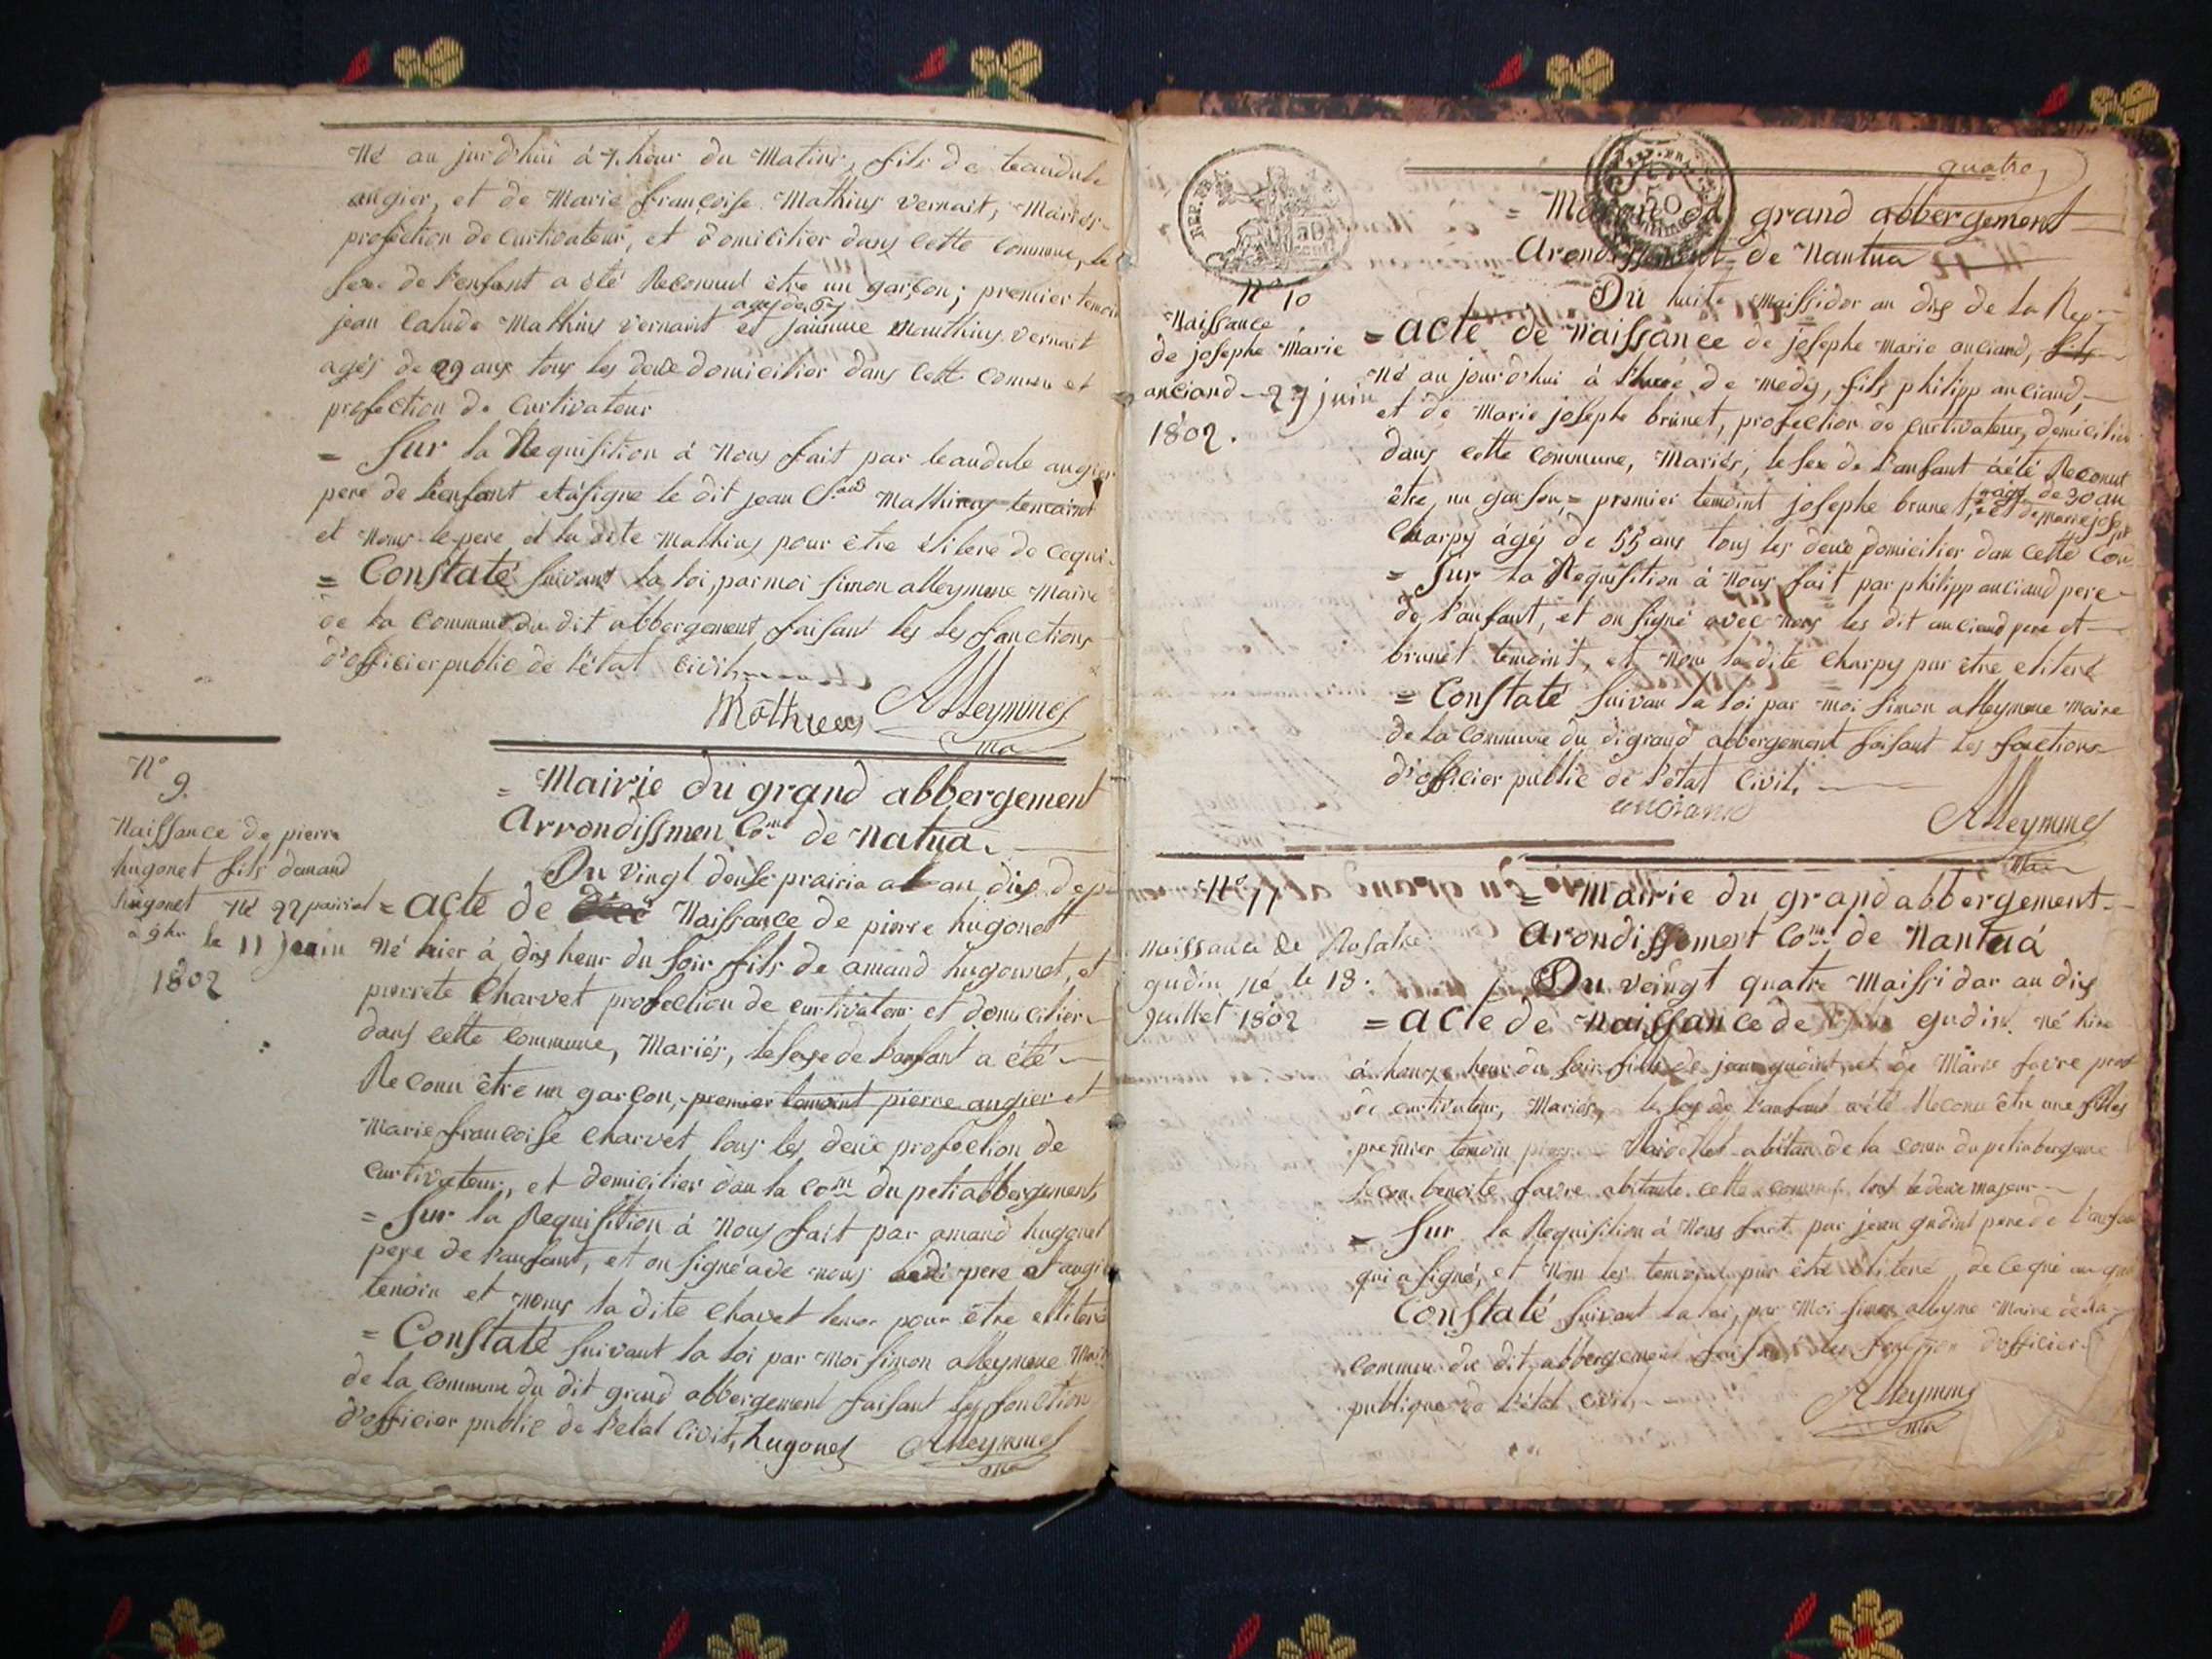 Né au jurd'hui à 7. heur du Matins, fils de teaudule
angier, et de Marie françoise Mathius vernait, Mariés
profection de curtivateur, et domicitier dans cette commune, le
sexe de l'enfant a été Reconnud être un garçon; premier temoin
agés de 67
jean calude Mathius vernaint et jaimme Mauthius vernait
agés de 29 ans tous les deux domicitier dans cette comun et
profection de curtivateur
= Sur la Requisition à Nous fait par teaudule angier
pere de l'enfant et à signe le dit jean C.aud Mathius temaint
et Nons le pere et la dite Mathius pour être élitere de cequi.
= Constaté suivant la loi, par moi simon alleymme Maire
de la commune du dit abbergement faisant les les fonctions
d'officier public de l'état civil
Mathieus Alleymmes
ma
N°
9.
Naissance de pierre
hugonet fils demand
hugonet né 22 pairial
a 9 hr le 11 Juin
1802
= Mairie du grand abbergement
Arrondissmen Com.al de Natua.
Du vingt deuse prairia al an dix de
= acte de Naissance de pierre hugonett
Né hier à dix heur du soir fils de amand hugonnet, et
pierrete Charvet profection de curtivateur et domicitier
dans cette commune, Mariés, le sexe de l'anfant a été
Reconu être un garçon, premier temoint pierre angier et
Marie françoise Charvet tous les deux profection de
curtivateur, et domicitier dan la com du peti abbergement,
= Sur la Requisition à Nous fait par amand hugonet
pere de l'anfant, et on signé avde nous pere et angier
temoin et nons la dite Chavet temo pour être elliteré
= Constaté suivant la loi par moi simon alleymme Mair
de la commune du dit grand abbergement faisant les fonction
d'officier public de l'etat Civil, hugonet Alleymmes
ma
quatre
50
= Mairie du grand abbergement
Arondissement de Nantua
N° 10
Du huite Maissidor an dix de la Rep
Naissance
de josephe Marie
anciand 27 juin
1802.
= acte de Naissance de josephe Marie anciand,
Né au jourd'hui à l'hure de medy, fils philipp anciand,
et de Marie josephe brunet, profection de curtivateur, domicitier
dans cette commune, Mariés, le sexe de l'anfant àété Reconut
être un garson = premier temoint josephe brunet, agé de 30 an
et de marie joseph
Charpy âgéy de 55 ans tous les deux domicitier dan cette Com
= Sur la Requisition à Nous fait par philipp anciand pere
de l'anfant, et on signé avec nous les dit anciand pere et
brunet temoint, et Nom la dite Charpy pur être elitere
= Constaté suivan la loi par moi simon alleymme maire
de la commune du digrand abbergement faisant les fonctions
d'officier public de l'etat Civil,
anciand
Alleymmes
Ma
N° 11
naissance de Rosalie
gudin né le 13.
Juillet 1802
= Mairie du grand abbergement
Arondissement Com.al de Nantuá
Du veingt quatre Maissidar an dix
= acte de Naissance de gudin. Né hire
à honze heur du soir fille de jean gudint, et de Marie favre prof
de curtivateur, Mariés, le sex de l'anfant aété Reconu être une filles
premier temoin abitan de la comu du petiabergeme
Secon. benoite favre abitante cette comun tous le deux majeur
= Sur la Requisition à Nous fait par jean gudint pere de l'anfan
qui a signé, et Nom les temoin pur être elitené de cequi
Constaté suivant la loi, par Moi simon alleyme Maire de la
commun du dit abbergement faisant les fonction d'officier
publique de l'état civil,
Alleymmes
ma